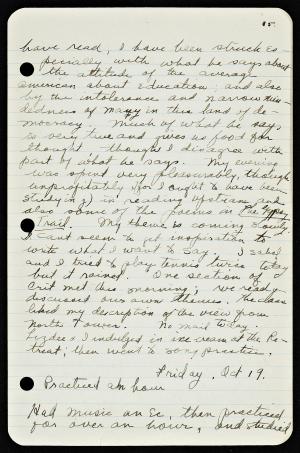 85.
have read, I have been struck es-
pecially with what he says about
the attitude of the average
american about education; and also
by the intolerance and narrow min-
dedness of many in this land of de-
mocracy. Much of what he says
is very true and gives us food for
thought though I disagree with
part of what he says. My evening
was spent very pleasurably, though
unprofitably (for I ought to have been
studying,) in reading Upstream and
also some of the poems in The Gypsy
Trail. My theme is coming slowly.
I can't seem to get inspiration to
write what I want to say. Isabel
and I tried to play tennis twice today
but it rained. One section of
Crit met this morning; we read and
discussed our own themes. The class
liked my description of the view from
North Tower. No mail today.
Lizdee & I indulged in ice cream at the Re-
treat; then went to song practice.
Friday, Oct 19.
Practiced an hour
Had music an Ec, then practiced
for over an hour, and studied